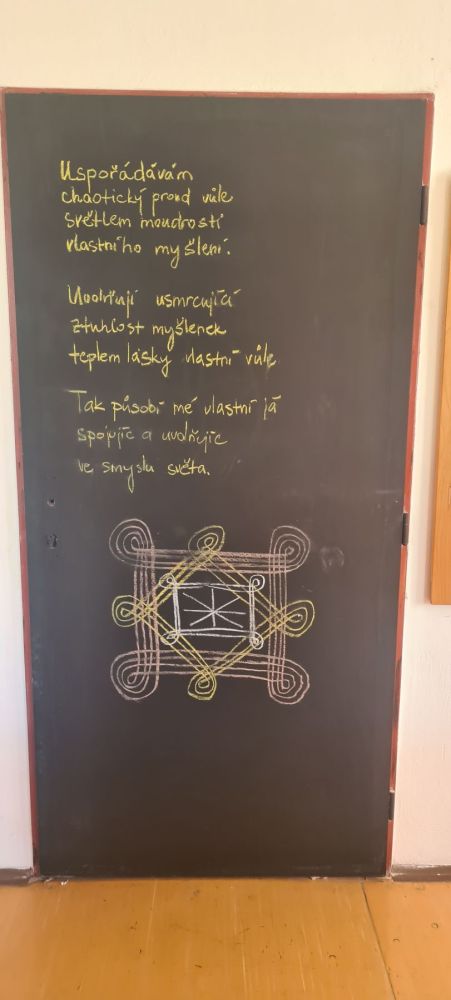 Uspořádávám
chaotický proud vůle
světlem moudrosti
vlastního myšlení.
Uvolňuji usmrcující
ztuhlost myšlenek
teplem lásky vlastní vůle
Tak působí mé vlastní já
spojujíc a uvolňujíc
ve smyslu světa.